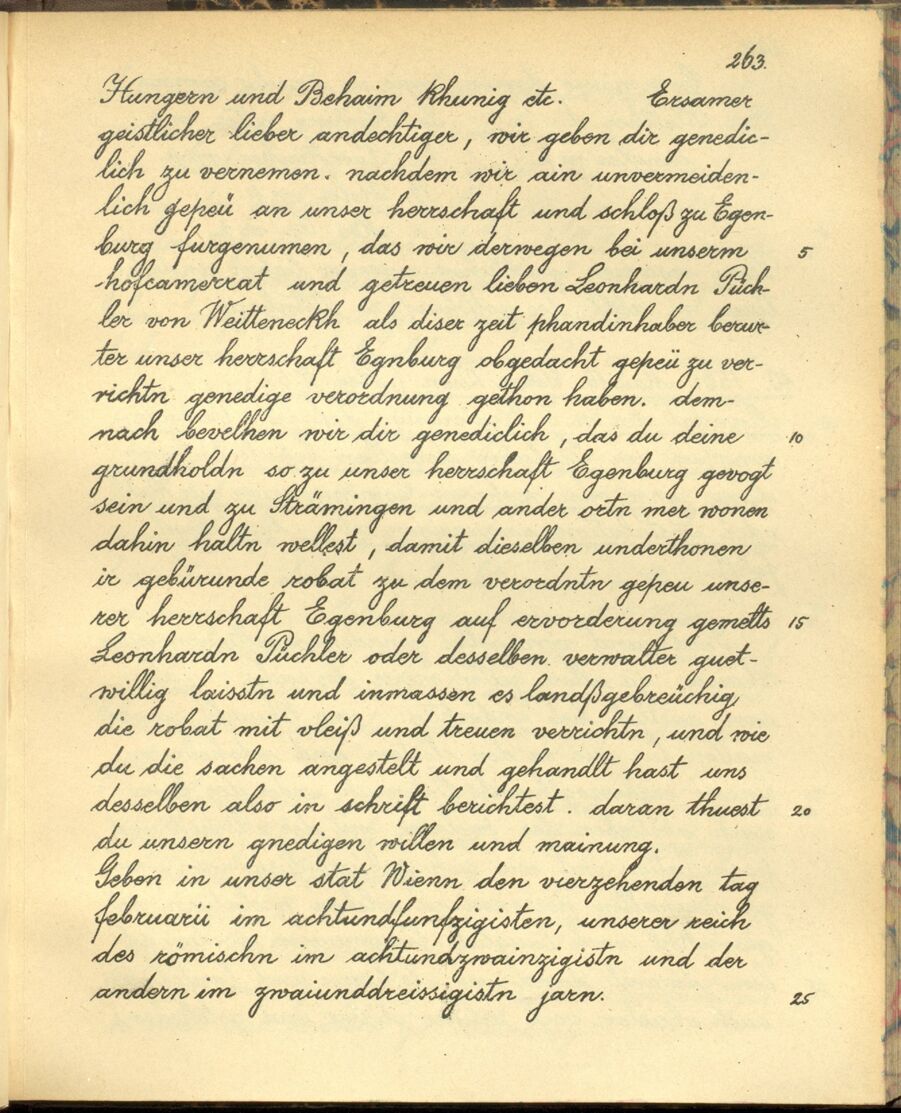 263.
Hungern und Behaim Khunig etc. Ersamer
geistlicher lieber andechtiger, wir geben dir genedic-
lich zu vernemen. nachdem wir ain unvermeiden-
lich gepeü an unser herrschaft und schloß zu Egen-
burg furgenumen, das wir derwegen bei unserm 5
hofcamerrat und getreuen lieben Leonhardn Püch-
ler von Weitteneckh als diser zeit phandinhaber berur-
ter unser herrschaft Egnburg obgedacht gepeü zu ver-
richtn genedige verordnung gethon haben. dem-
nach bevelhen wir dir genediclich, das du deine 10
grundholdn so zu unser herrschaft Egenburg gevogt
sein und zu Strämingen und ander ortn mer wonen
dahin haltn wellest, damit dieselben underthonen
ir gebürunde robat zu dem verordntn gepeu unse-
rer herrschaft Egenburg auf ervorderung gemelts 15
Leonhardn Püchler oder desselben verwalter guet-
willig laisstn und inmassen es landßgebreüchig,
die robat mit vleiß und treuen verrichtn, und wie
du die sachen angestelt und gehandlt hast uns
desselben also in schrift berichtest. daran thuest 20
du unsern gnedigen willen und mainung.
Geben in unser stat Wienn den vierzehenden tag
februarii im achtundfunfzigisten, unserer reich
des römischn im achtundzwainzigistn und der
andern im zwaiunddreissigistn jarn. 25